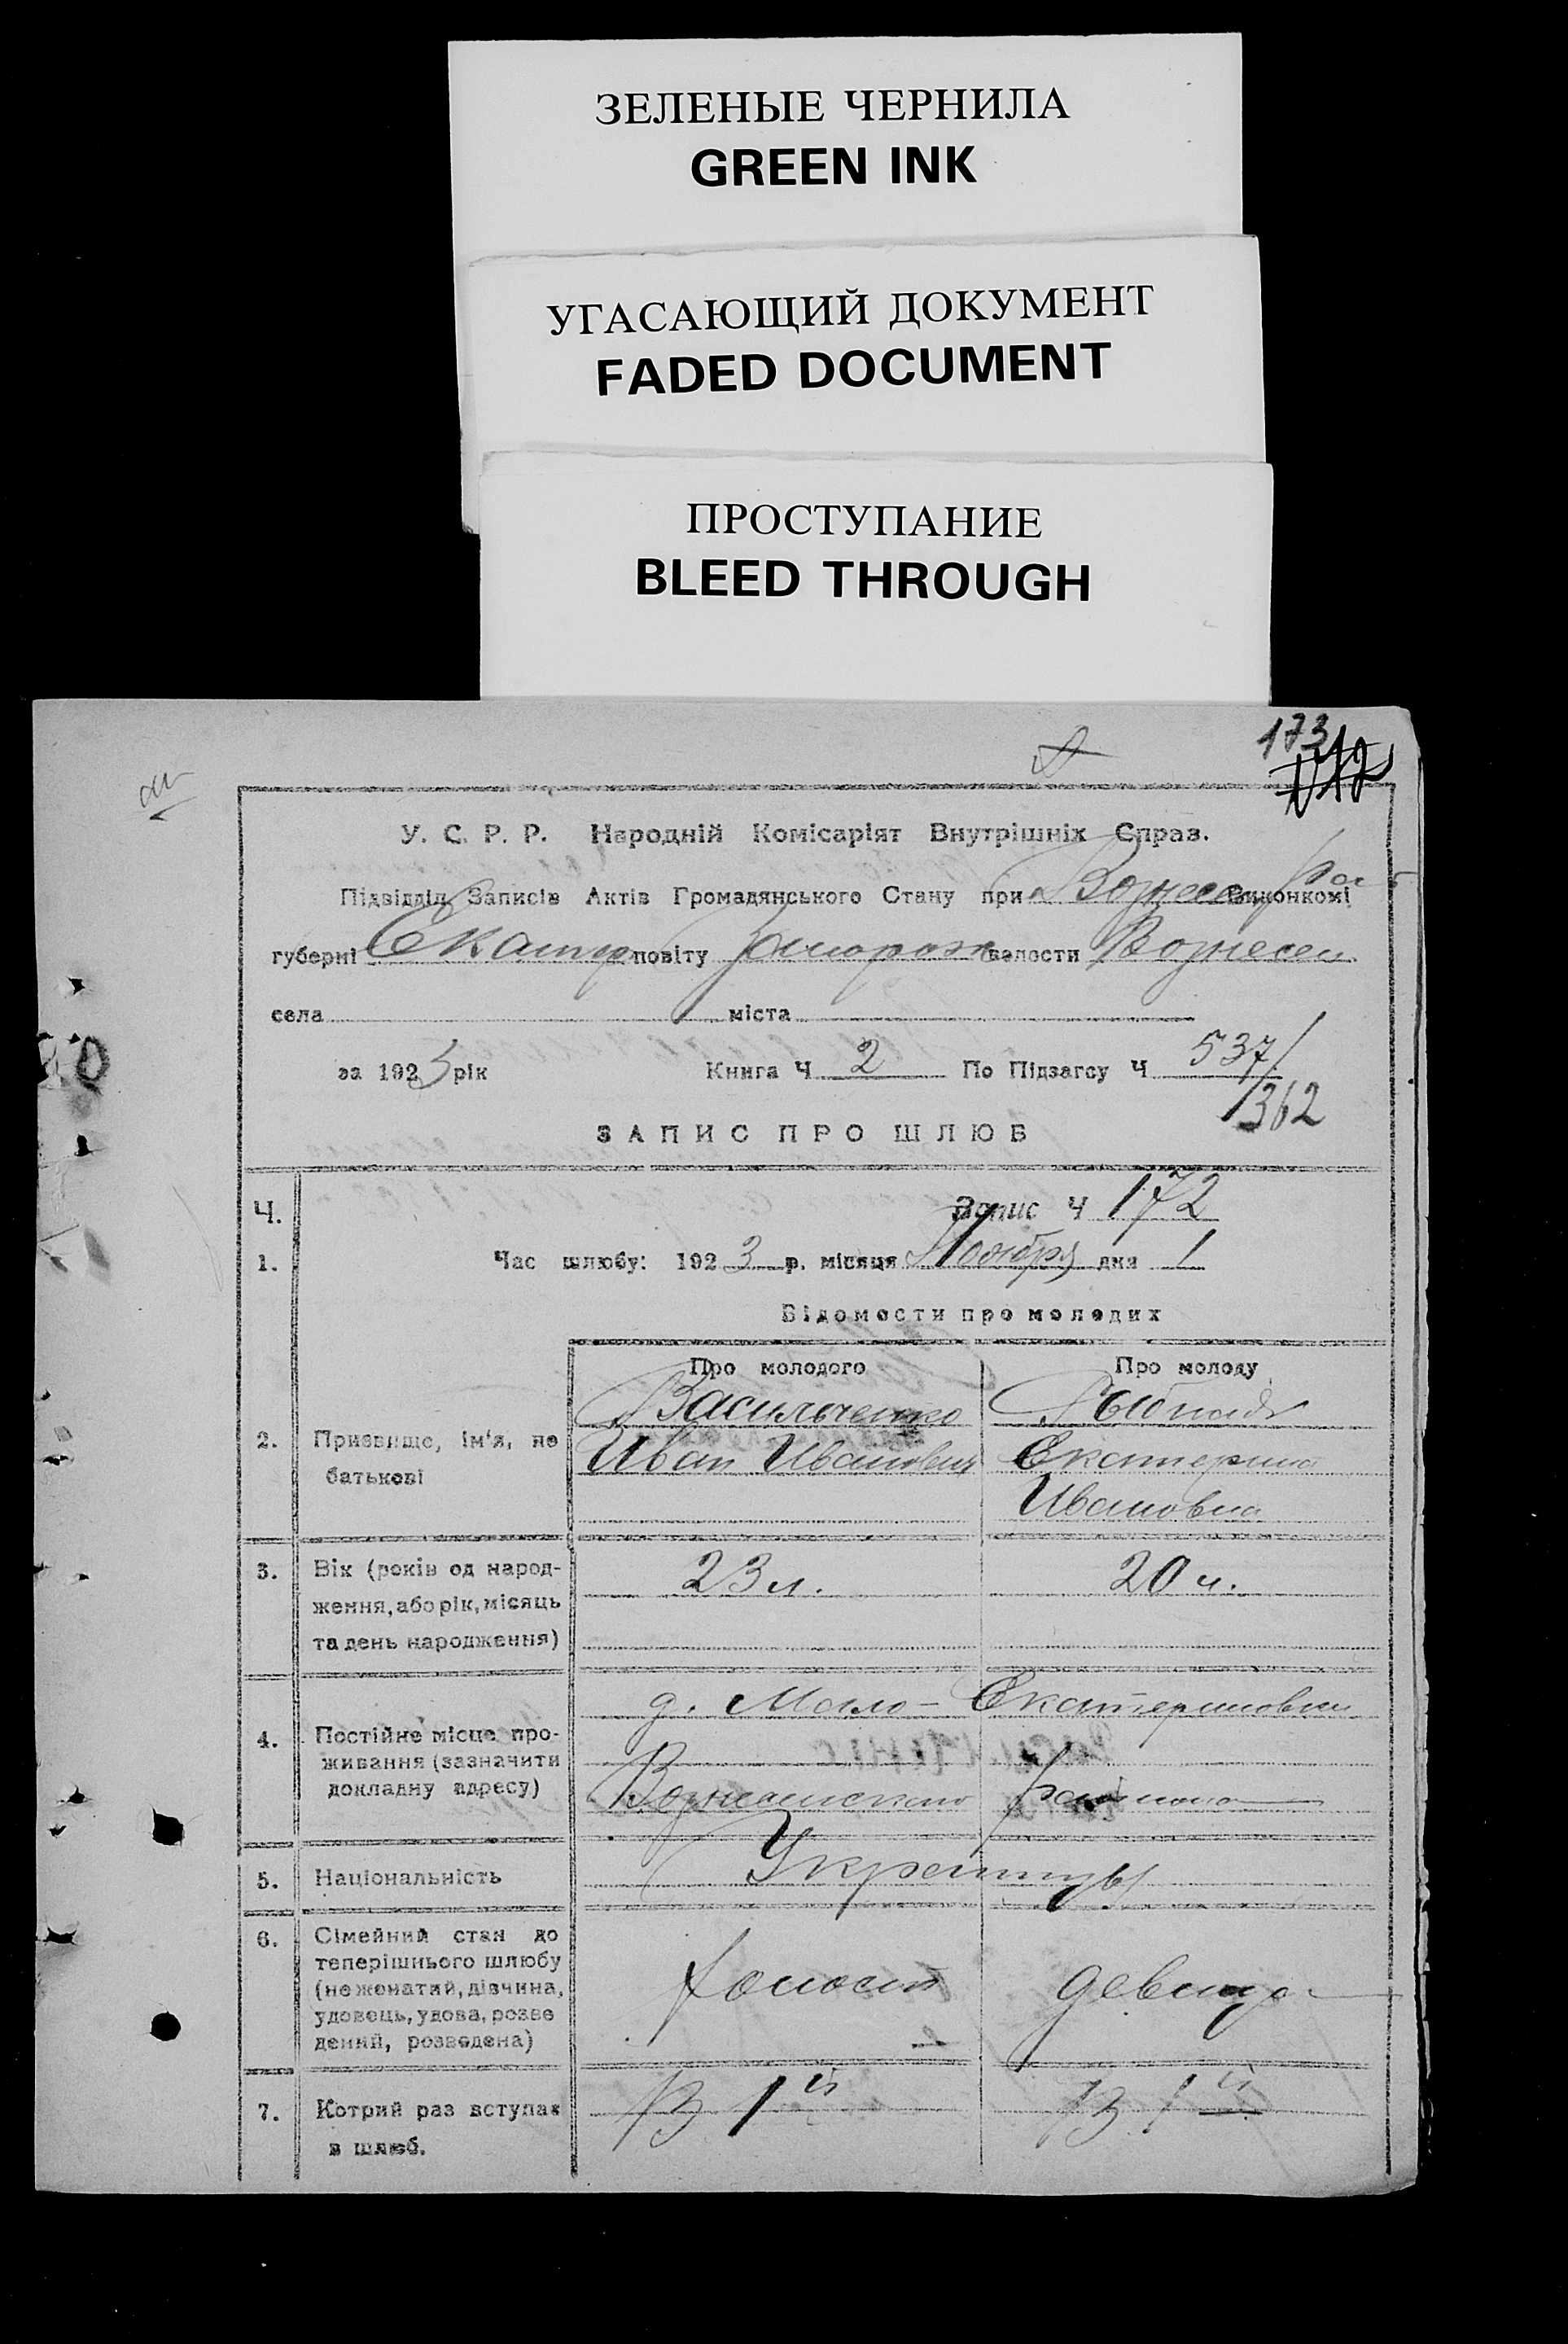 ЗЕЛЕНЫЕ ЧЕРНИЛА
GREEN INK
УГАСАЮЩИЙ ДОКУМЕНТ
FADED DOCUMENT
ПРОСТУПАНИЕ
BLEED THROUGH
173
У. С. Р. Р. Народній Комісаріят Внутрішніх Справ.
Підвідділ Записів Актів Громадянського Стану при Вознесен Рай Виконкомі
губерні Екатер повіту Запорож волости Вознесен
села міста
за 1923 рік Книга Ч 2 По Підзагсу Ч 537/
362
ЗАПИС ПРО ШЛЮБ
Ч. Запис Ч 172
1. Час шлюбу: 1923 р. місяця Ноября дня 1
Відомости про молодих
Про молодого Про молоду
Васильченко
2. Призвище, ім'я, по Иван Иванович Екатерина
батькові Ивановна
3. Вік (років од народ- 23 л. 20 л.
ження, або рік, місяць
та день народження)
д. Мало-Екатериновки
4. Постійне місце про-
живання (зазначити
докладну адресу) Вознесенского района
5. Національність Украинцы
6. Сімейний стан до
теперішнього шлюбу
(не женатий, дівчина, холост девица
удовець, удова, розве
дений, розведена)
7. Котрий раз вступає В 1й В 1й
в шлюб.